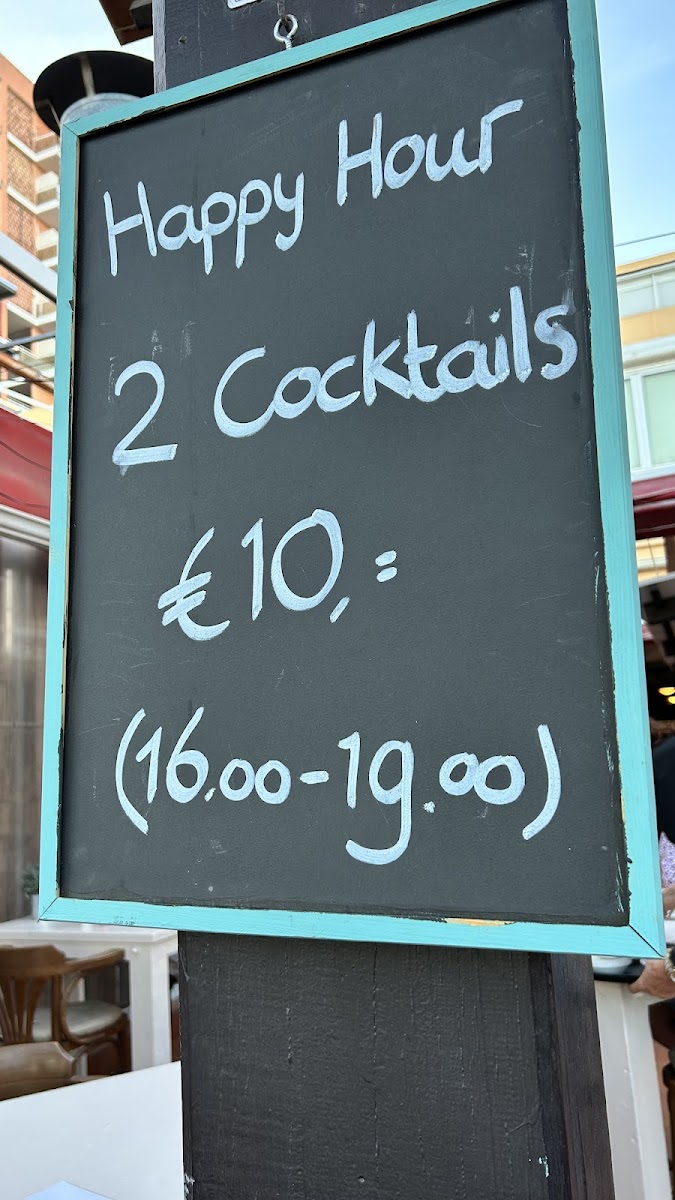 Happy Hour
2 Cocktails
€10,=
(16.00-19.00)